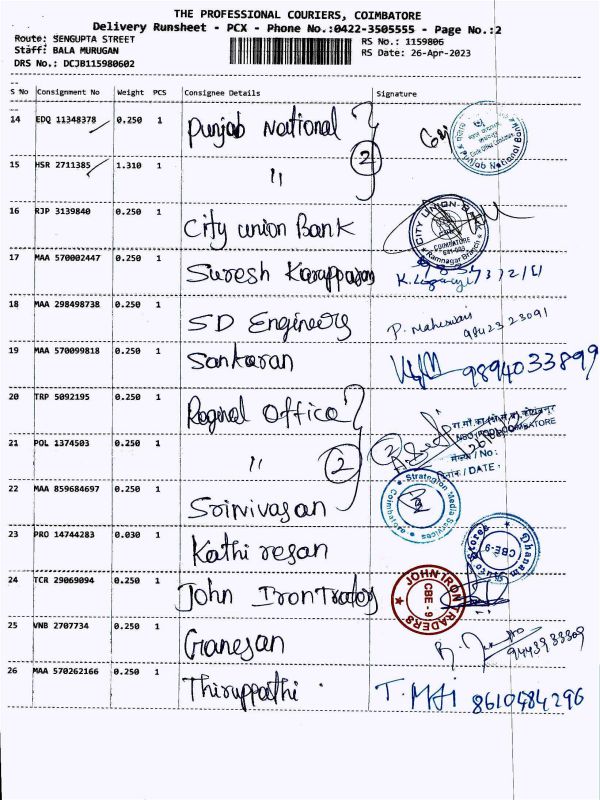 THE PROFESSIONAL COURIERS, COIMBATORE
Delivery Runsheet - PCX - Phone No.:0422-3505555 - Page No.:2
Route: SENGUPTA STREET
RS No.: 1159806
Staff: BALA MURUGAN
RS Date: 26-Apr-2023
DRS No.: DCJB115980602
S No Consignment No Weight PCS Consignee Details Signature
14 EDQ 11348378 0.250 1 Punjab National
Punjab National Bank
2
15 HSR 2711385 1.310 1 "
16 RJP 3139840 0.250 1 City union Bank
CITY UNION
COIMBATORE
Ramnagar Branch
17 MAA 570002447 0.250 1 Suresh Karuppasam
18 MAA 298498738 0.250 1 SD Engineers P. Maheswari 9842323091
19 MAA 570099818 0.250 1 Sankaran 9894033899
20 TRP 5092195 0.250 1 Reginal office
COIMBATORE
2
21 POL 1374503 0.250 1 "
संख्या / No:
दिनांक / DATE.
22 MAA 859684697 0.250 1 Srinivasan
Stratagion Media Services
Coimbatore
23 PRO 14744283 0.030 1 Kathiresan
Dhanam Stores
CBE-9
24 TCR 29069094 0.250 1 John Iron Traders
JOHN IRON TRADERS
CBE - 9
25 VNB 2707734 0.250 1 Ganesan
26 MAA 570262166 0.250 1 Thiruppathi T. MAi 8610484296